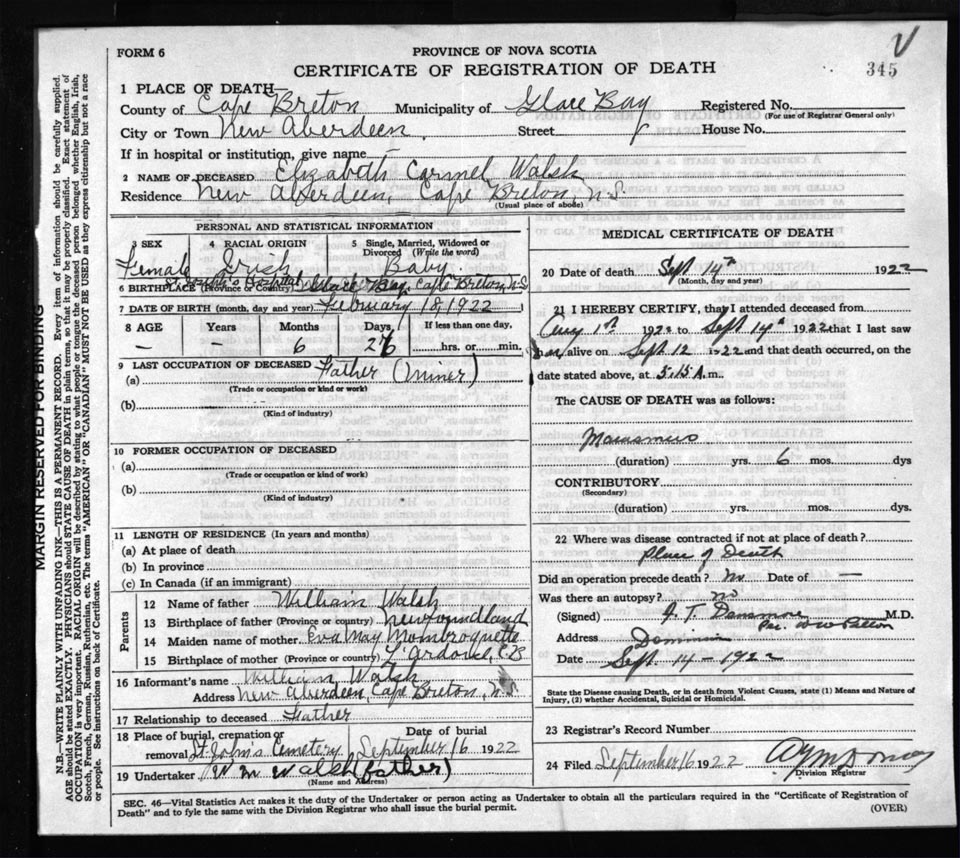 FORM 6
PROVINCE OF NOVA SCOTIA
CERTIFICATE OF REGISTRATION OF DEATH
345
1 PLACE OF DEATH
County of Cape Breton Municipality of Glace Bay Registered No.
(For use of Registrar General only)
City or Town New Aberdeen. Street House No.
If in hospital or institution, give name
2 NAME OF DECEASED Elizabeth Carmel Walsh
Residence New Aberdeen, Cape Breton, N.S.
(Usual place of abode)
PERSONAL AND STATISTICAL INFORMATION
3 SEX 4 RACIAL ORIGIN 5 Single, Married, Widowed or Divorced (Write the word)
Female Irish Baby
6 BIRTHPLACE (Province or Country) St. Joseph's Hospital Glace Bay, Cape Breton, N.S
7 DATE OF BIRTH (month, day and year) February 18, 1922
8 AGE Years Months Days If less than one day,
— — 6 26 hrs. or min.
9 LAST OCCUPATION OF DECEASED
(a) Father (Miner)
(Trade or occupation or kind or work)
(b)
(Kind of industry)
10 FORMER OCCUPATION OF DECEASED
(a)
(Trade or occupation or kind of work)
(b)
(Kind of industry)
11 LENGTH OF RESIDENCE (In years and months)
(a) At place of death
(b) In province
(c) In Canada (if an immigrant)
Parents
12 Name of father William Walsh
13 Birthplace of father (Province or country) Newfoundland
14 Maiden name of mother Eva May Mombroquette
15 Birthplace of mother (Province or country) L'Ardoise, C.B
16 Informant's name William Walsh
Address New Aberdeen, Cape Breton, N.S.
17 Relationship to deceased Father
18 Place of burial, cremation or removal St John's Cemetery Date of burial September 16 1922
19 Undertaker Wm Walsh (father)
(Name and Address)
MEDICAL CERTIFICATE OF DEATH
20 Date of death Sept 14th 1922
(Month, day and year)
21 I HEREBY CERTIFY, that I attended deceased from
Aug 1st 1922 to Sept 14th 1922 that I last saw
her alive on Sept 12 1922 and that death occurred, on the
date stated above, at 5.15 A.m.
The CAUSE OF DEATH was as follows:
(duration) yrs. 6 mos. dys
CONTRIBUTORY
(Secondary)
(duration) yrs. mos. dys.
22 Where was disease contracted if not at place of death?
Place of Death
Did an operation precede death? No Date of —
Was there an autopsy? no
(Signed) M.D.
Address Dominion
Date Sept 14 - 1922
State the Disease causing Death, or in death from Violent Causes, state (1) Means and Nature of
Injury, (2) whether Accidental, Suicidal or Homicidal.
23 Registrar's Record Number
24 Filed September 16 1922
Division Registrar
SEC. 46—Vital Statistics Act makes it the duty of the Undertaker or person acting as Undertaker to obtain all the particulars required in the "Certificate of Registration of
Death" and to fyle the same with the Division Registrar who shall issue the burial permit.
(OVER)
MARGIN RESERVED FOR BINDING
N.B.—WRITE PLAINLY WITH UNFADING INK—THIS IS A PERMANENT RECORD. Every item of information should be carefully supplied.
AGE should be stated EXACTLY. PHYSICIANS should STATE CAUSE OF DEATH in plain terms, so that it may be properly classified. Exact statement of
OCCUPATION is very important. RACIAL ORIGIN will be described by stating to what people or tongue the deceased person belonged whether English, Irish,
Scotch, French, German, Russian, Ruthenian, etc. The terms "AMERICAN" OR "CANADIAN" MUST NOT BE USED as they express citizenship but not a race
or people. See instructions on back of Certificate.